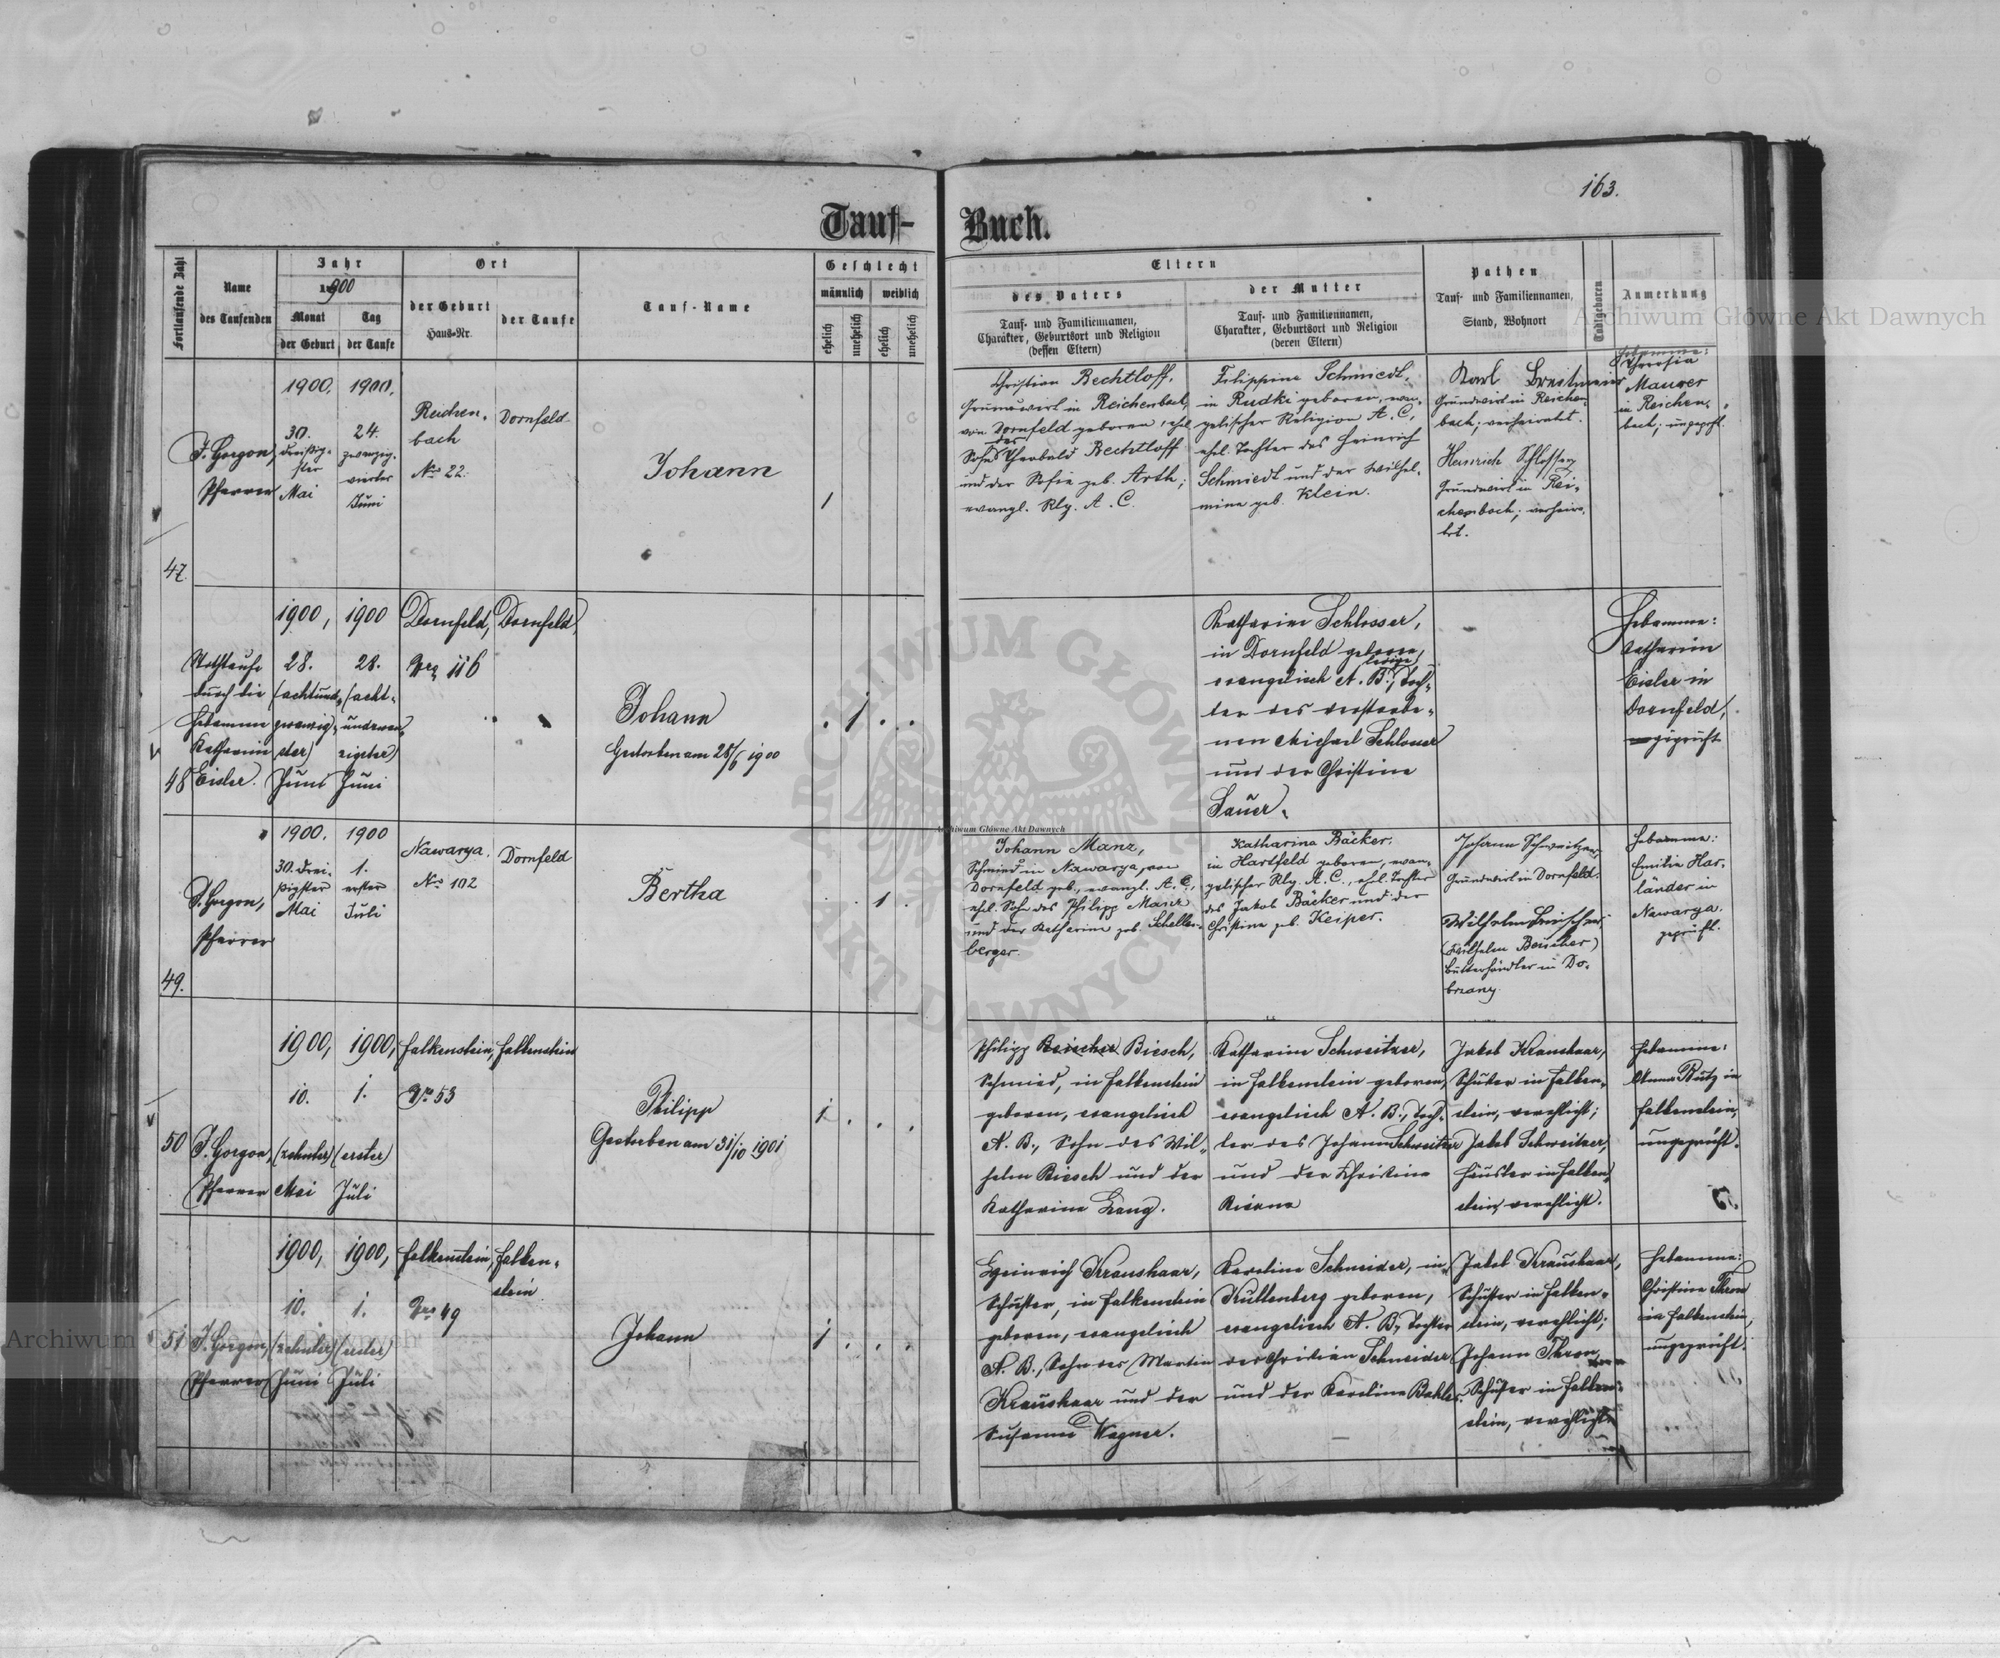 163.
Tauf-
Buch.
Fortlaufende Zahl
Name
des Taufenden
Jahr
1900
Monat
der Geburt
Tag
der Taufe
Ort
der Geburt
Haus-Nr.
der Taufe
Tauf-Name
Geschlecht
männlich
weiblich
ehelich
unehelich
ehelich
unehelich
Eltern
des Vaters
Tauf- und Familiennamen,
Charakter, Geburtsort und Religion
(dessen Eltern)
der Mutter
Tauf- und Familiennamen,
Charakter, Geburtsort und Religion
(deren Eltern)
Pathen
Tauf- und Familiennamen,
Stand, Wohnort
Todtgeboren
Anmerkung
47.
J. Gorgon,
Pfarrer
1900.
30.
dreißig-
ster
Mai
1900.
24.
zwanzig-
vierter
Juni
Reichen-
bach
No 22.
Dornfeld
Johann
1
Christian Bechtloff,
Grundwirt in Reichenbach,
von Dornfeld geboren, ehel.
Sohn des Theobald Bechtloff
und der Sofie geb. Arth;
evangl. Rlg. A. C.
Filippine Schmiedt,
in Rudki geboren, evan-
gelischer Religion A. C.,
ehel. Tochter des Heinrich
Schmiedt und der Wilhel-
mine geb. Klein.
Karl
Grundwirt in Reichen-
bach; verheiratet.
Heinrich Schlosser,
Grundwirt in Rei-
chenbach; verheira-
tet.
Hebamme:
Theresia
Maurer
in Reichen-
bach; ungeprft.
48
Nothtaufe
durch die
Hebamme
Katharine
Eisler.
1900,
28.
(achtund-
zwanzig-
ster)
Juni
1900
28.
(acht-
undzwan-
zigster)
Juni
Dornfeld,
Nro 116
Dornfeld,
Johann
Gestorben am 28/6 1900
1
Katharine Schlosser,
in Dornfeld geboren,
ledige
evangelisch A. B., Toch-
ter des verstorbe-
nen Michael Schlosser
und der Christine
Sauer.
Hebamme:
Katharine
Eisler in
Dornfeld,
geprüft
49.
J. Gorgon,
Pfarrer
1900.
30. drei-
ßigster
Mai
1900
1.
erster
Juli
Nawarya.
No 102
Dornfeld
Bertha
1
Johann Manz,
Schmied in Nawarya, von
Dornfeld geb., evangl. A. C.,
ehel. Sohn des Philipp Manz
und der Katharine geb. Schellen-
berger.
Katharina Bäcker,
in Hartfeld geboren, evan-
gelischer Rlg. A. C., ehel. Tochter
des Jakob Bäcker und der
Christine geb. Keiper.
Johann Schweitzer,
Grundwirt in Dornfeld.
Wilhelm
(Wilhelm Beischer)
Butterhändler in Do-
brzany.
Hebamme:
Emilie Har-
länder in
Nawarya.
geprüft.
50
J. Gorgon,
Pfarrer
1900,
10.
(zehnter)
Mai
1900,
1.
(erster)
Juli
Falkenstein,
Nro 53
Falkenstein
Philipp
Gestorben am 31/10 1901
1
Philipp Beischer Biesch,
Schmied, in Falkenstein
geboren, evangelisch
A. B., Sohn des Wil-
helm Biesch und der
Katharine Lang.
Katharine Schweitzer,
in Falkenstein geboren,
evangelisch A. B., Toch-
ter des Johann Schweitzer
und der Christine
Jakob Kraushaar,
Schuster in Falken-
stein, verehlicht;
Jakob Schweitzer,
Häusler in Falken-
stein, verehlicht.
Hebamme:
Anna Butz in
Falkenstein,
ungeprüft.
51
J. Gorgon,
Pfarrer
1900,
10.
(zehnter)
Juni
1900,
1.
(erster)
Juli
Falkenstein,
Nro 49
Falken-
stein
Johann
1
Heinrich Kraushaar,
Schuster, in Falkenstein
geboren, evangelisch
A. B., Sohn des Martin
Kraushaar und der
Susanne Wagner.
Karoline Schneider, in
Kuttenberg geboren,
evangelisch A. B., Tochter
des Christian Schneider
und der Karoline Bahler.
Jakob Kraushaar,
Schuster in Falken-
stein, verehlicht;
Johann Thron,
Schuster in Falken-
stein, verehlicht
Hebamme:
Christine Thron
in Falkenstein,
ungeprüft.
Archiwum Główne Akt Dawnych
ARCHIWUM GŁÓWNE AKT DAWNYCH
Archiwum Główne Akt Dawnych
Archiwum Główne Akt Dawnych